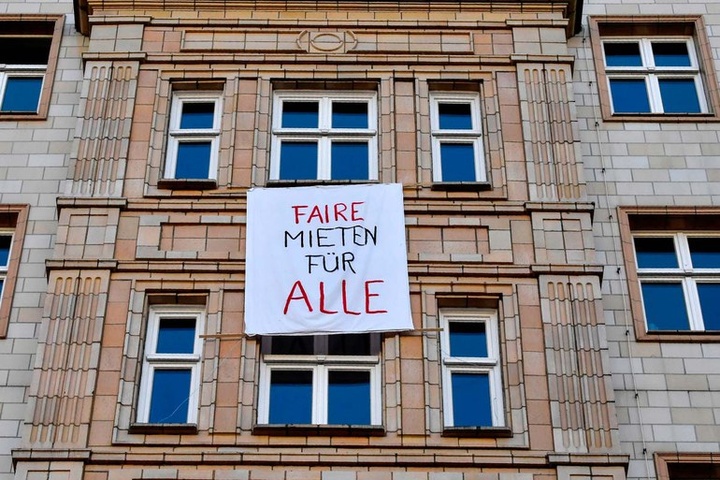 FAIRE
MIETEN
FÜR
ALLE